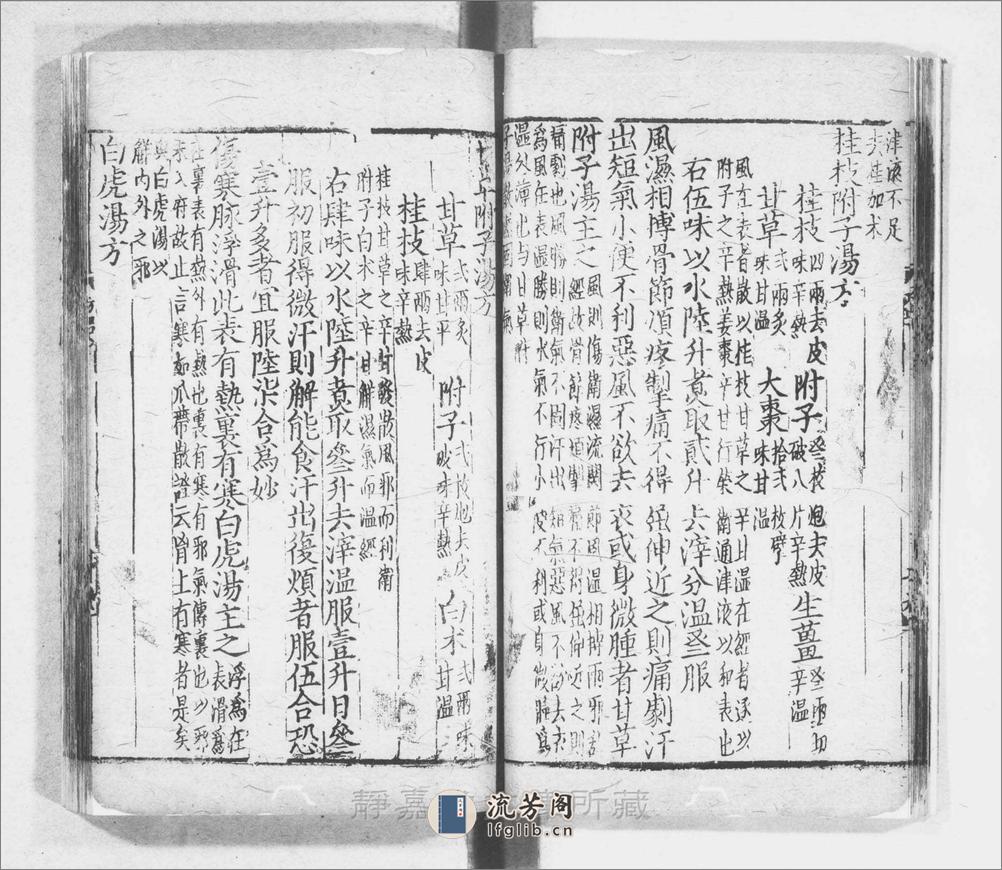 津液不足
去桂加术
桂枝附子湯方
桂枝四兩去皮味辛熱 附子叁枚炮去皮破八片辛熱 生薑叁兩切辛温
甘草弍兩炙味甘温 大棗拾弍枚擘味甘温
風在表者散以桂枝甘草之辛甘温在經者逐以
附子之辛熱姜棗辛甘行榮衛通津液以和表也
右伍味以水陸升煮取貳升去滓分温叁服
風濕相搏骨節煩疼掣痛不得強伸近之則痛劇汗
出短氣小便不利惡風不欲去衣或身微腫者甘草
附子湯主之風則傷衛濕流關節風濕相搏兩邪亂
經故骨節疼煩掣痛不得屈伸近之則
痛劇也風勝則衛氣不固汗出短氣惡風不欲去衣
為風在表濕勝則水氣不行小便不利或身微腫為
濕外薄也與甘草附
子湯散濕固衛氣
甘草附子湯方
甘草弍兩炙味甘平 附子弍枚炮去皮破味辛熱 白术弍兩味甘温
桂枝肆兩去皮味辛熱
桂枝甘草之辛甘發散風邪而利衛
附子白术之辛甘解濕氣而温經
右肆味以水陸升煮取叁升去滓温服壹升日叁
服初服得微汗則解能食汗出復煩者服伍合恐
壹升多者宜服陸柒合為妙
傷寒脉浮滑此表有熱裏有寒白虎湯主之浮為在表滑為
在裏表有熱外有熱也裏有寒有邪氣傳裏也以邪
未入府故止言寒如瓜蒂散證云胷上有寒者是矣
與白虎湯以
解內外之邪
白虎湯方
靜嘉 所藏
流芳阁
lfglib.cn